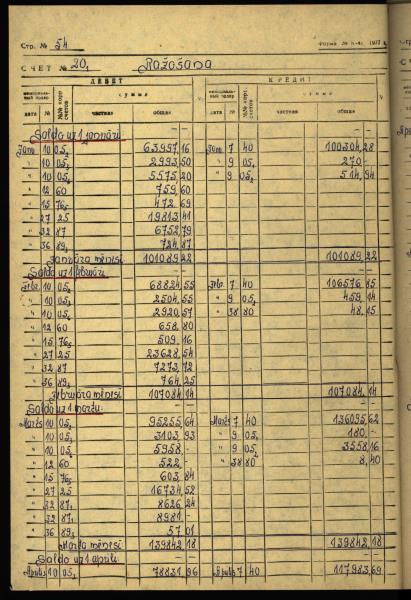 Стр. № 54
Форма № К-4, 1977 г.
СЧЕТ № 20₁ Ražošana
ДЕБЕТ КРЕДИТ
суммы суммы
дата № №№ корр. счетов частные общие дата № №№ корр. счетов частные общие
Saldo uz 1 janvāri — — — —
Janv. 10 05₂ 63957,16 Janv. 7 40 100304,28
" 10 05₃ 2993,50 " 9 05₁ 270-
" 10 05₂ 5575,20 " 9 05₂ 514,94
" 12 60 759,60
" 15 76₅ 472,69
" 27 25 19813,41
" 32 87 6752,79
" 36 89₃ 724,87
Janvāra mēnesī 101089,22 101089,22
Saldo uz 1 februāri — — — —
Febr. 10 05₂ 68824,55 Febr. 7 40 106576,85
" 10 05₃ 2504,55 " 9 05₂ 459,14
" 10 05₂ 2920,57 " 38 80 48,15
" 12 60 658,80
" 15 76₅ 509,16
" 27 25 23628,54
" 32 87 7273,72
" 36 89₃ 764,25
Februāra mēnesī 107084,14 107084,14
Saldo uz 1 martu — — — —
Marts 10 05₂ 95255,64 Marts 7 40 136095,62
" 10 05₃ 3103,93 " 9 05₂ 180,-
" 10 05₂ 5958,- " 9 05₂ 3558,16
" 12 60 522,- " 38 80 8,40
" 15 76₅ 603,84
" 27 25 16734,52
" 32 87₁ 8626,24
" 32 87₁ 8981-
" 36 89₃ 57,01
Marta mēnesī 139842,18 139842,18
Saldo uz 1 aprīli — — — —
Aprīlis 10 05₂ 78831,96 Aprīlis 7 40 117983,69